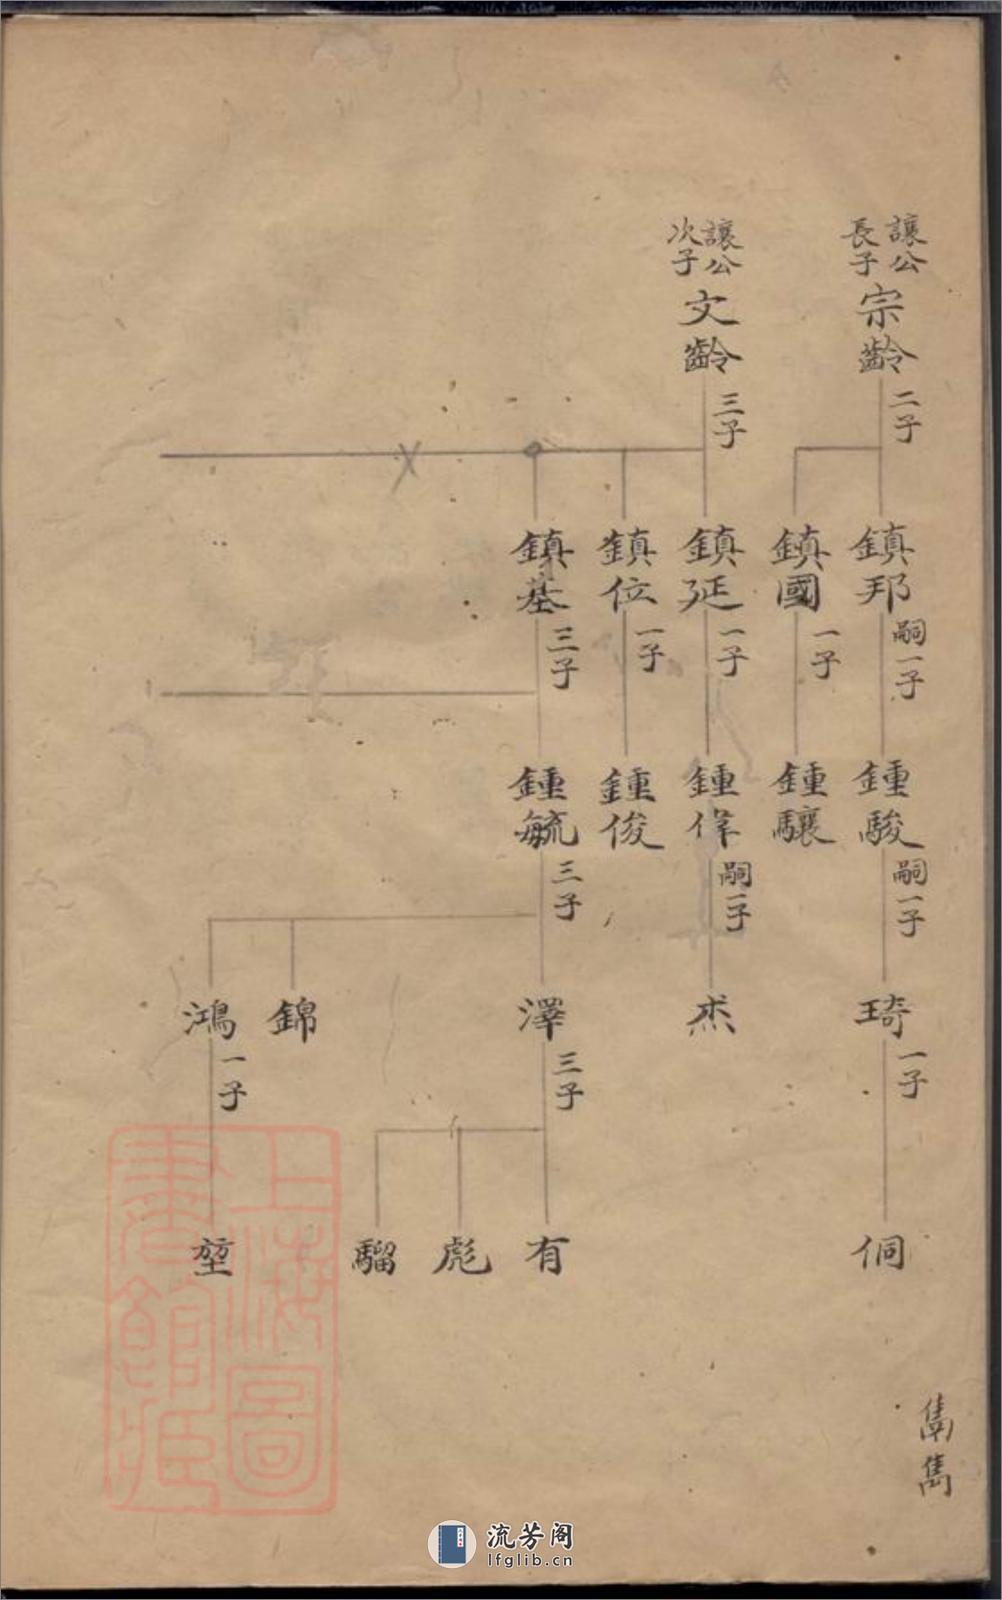 讓公
長子
宗齡
二子
讓公
次子
文齡
三子
鎮邦
嗣一子
鎮國
一子
鎮延
一子
鎮位
一子
鎮基
三子
鍾駿
嗣一子
鍾驤
鍾倬
嗣一子
鍾俊
鍾毓
三子
琦
一子
杰
澤
三子
錦
鴻
一子
侗
有
彪
騮
堃
雋
上海圖
書館藏
流芳阁
lfglib.cn